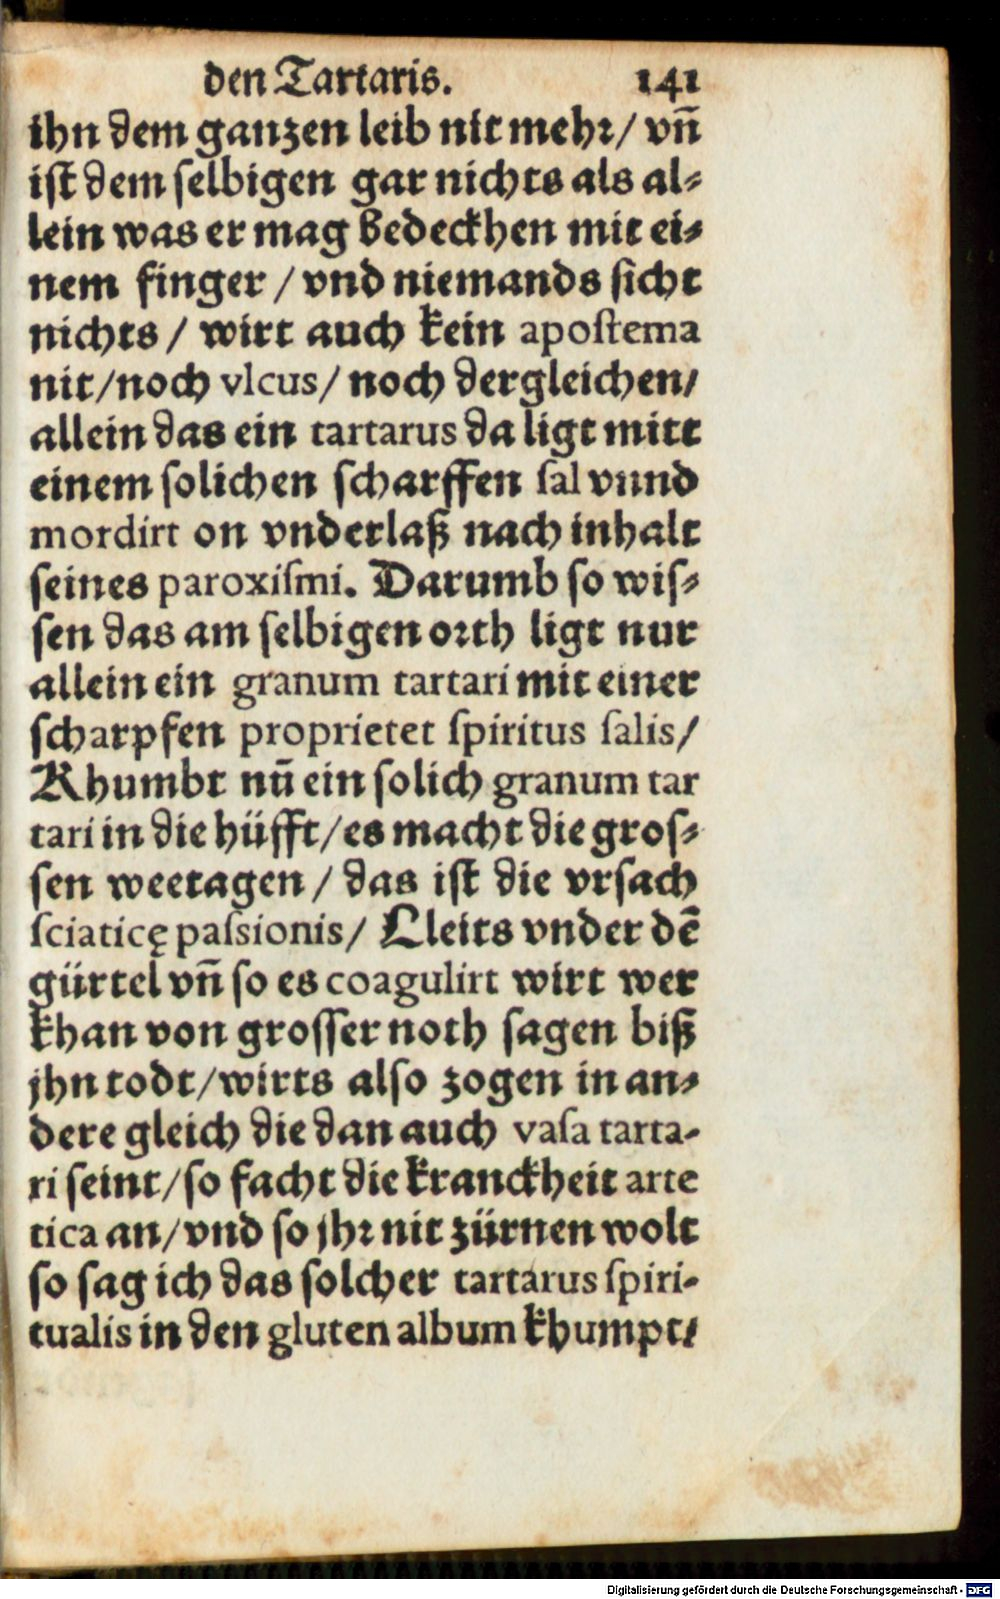 den Tartaris. 141
ihn dem ganzen leib nit mehꝛ/ vn̄
ist dem selbigen gar nichts als al⸗
lein was er mag bedeckhen mit ei⸗
nem finger / vnd niemands sicht
nichts / wirt auch kein apoſtema
nit/noch vlcus/ noch dergleichen/
allein das ein tartarus da ligt mitt
einem ſolichen ſcharffen ſal vnnd
mordirt on vnderlaß nach inhalt
ſeines paroxiſmi. Darumb ſo wiſ⸗
ſen das am ſelbigen oꝛth ligt nur
allein ein granum tartari mit einer
ſcharpfen proprietet ſpiritus ſalis/
Khumbt nū ein ſolich granum tar
tari in die hüfft/es macht die groſ⸗
ſen weetagen / das iſt die vrſach
ſciaticę paſsionis/ Lleits vnder dē
gürtel vn̄ ſo es coagulirt wirt wer
khan von groſſer noth ſagen biß
jhn todt/wirts alſo zogen in an⸗
dere gleich die dan auch vaſa tarta-
ri ſeint/ſo facht die kranckheit arte
tica an/vnd ſo jhꝛ nit zürnen wolt
ſo ſag ich das ſolcher tartarus ſpiri-
tualis in den gluten album khumpt/
Digitalisierung gefördert durch die Deutsche Forschungsgemeinschaft - DFG